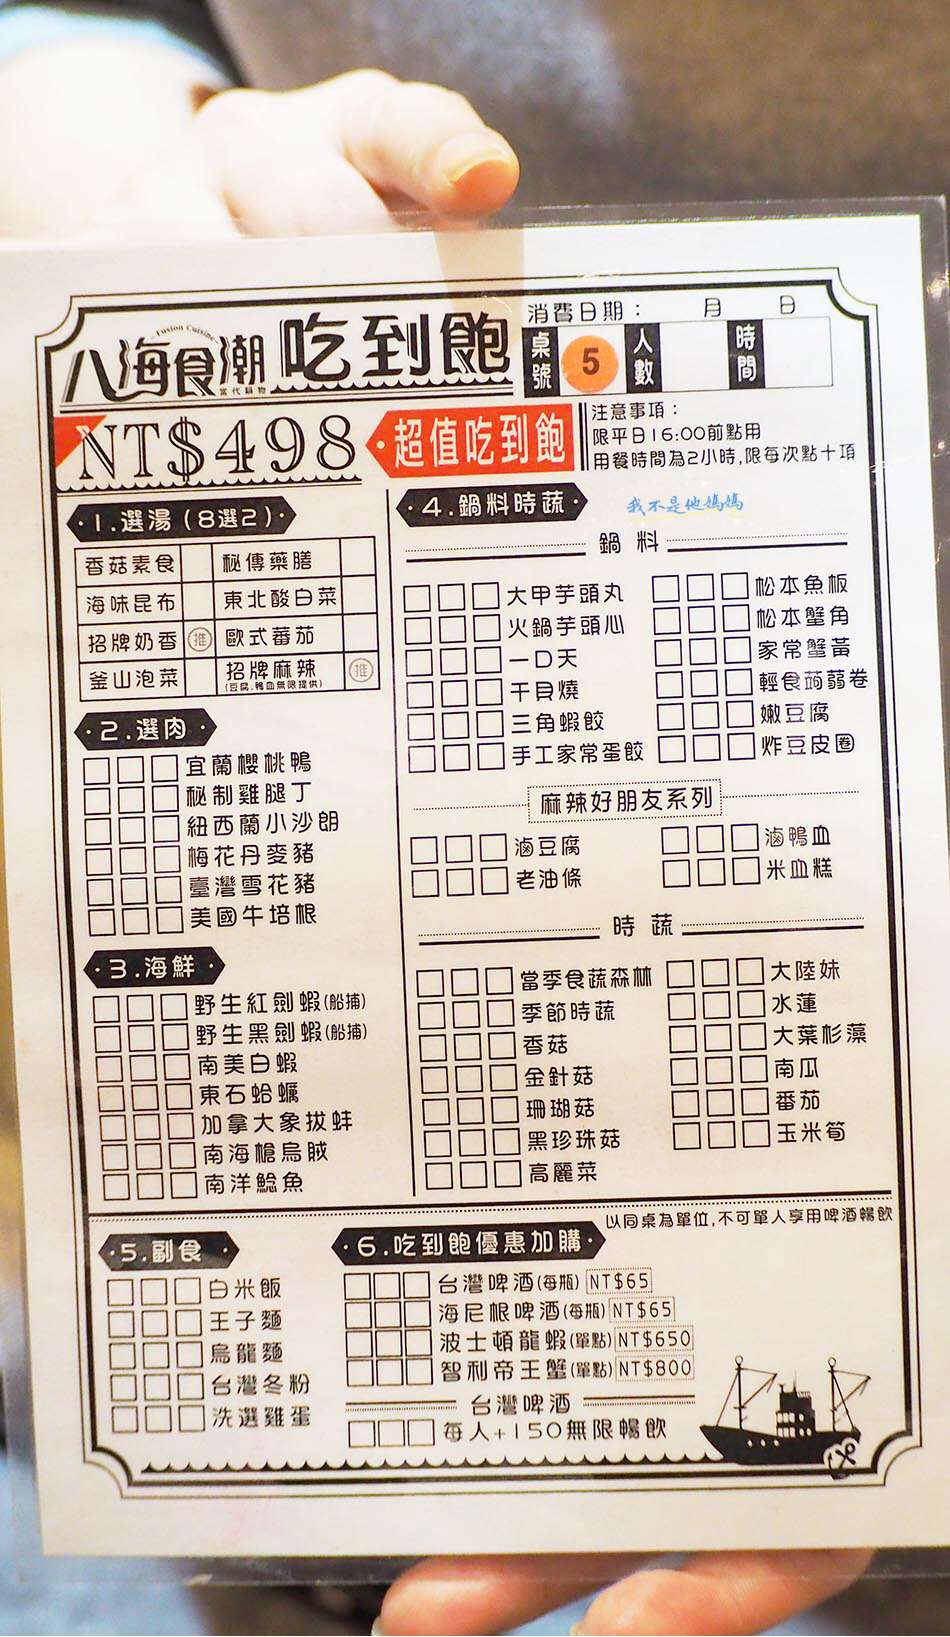 Fusion Cuisine
八海食潮 吃到飽
當代鍋物
消費日期： 月 日
桌號 5 人數 時間
NT$498 ·超值吃到飽
注意事項：
限平日16:00前點用
用餐時間為2小時,限每次點十項
·1.選湯(8選2)·
香菇素食 秘傳藥膳
海味昆布 東北酸白菜
招牌奶香 推 歐式蕃茄
釜山泡菜 招牌麻辣 推
(豆腐.鴨血無限提供)
·2.選肉·
宜蘭櫻桃鴨
秘制雞腿丁
紐西蘭小沙朗
梅花丹麥豬
臺灣雪花豬
美國牛培根
·3.海鮮·
野生紅劍蝦(船捕)
野生黑劍蝦(船捕)
南美白蝦
東石蛤蠣
加拿大象拔蚌
南海槍烏賊
南洋鯰魚
·4.鍋料時蔬·
我不是他媽媽
鍋料
大甲芋頭丸 松本魚板
火鍋芋頭心 松本蟹角
一口天 家常蟹黃
干貝燒 輕食蒟蒻卷
三角蝦餃 嫩豆腐
手工家常蛋餃 炸豆皮圈
麻辣好朋友系列
滷豆腐 滷鴨血
老油條 米血糕
時蔬
當季食蔬森林 大陸妹
季節時蔬 水蓮
香菇 大葉杉藻
金針菇 南瓜
珊瑚菇 番茄
黑珍珠菇 玉米筍
高麗菜
·5.副食·
白米飯
王子麵
烏龍麵
台灣冬粉
洗選雞蛋
以同桌為單位,不可單人享用啤酒暢飲
·6.吃到飽優惠加購·
台灣啤酒(每瓶) NT$65
海尼根啤酒(每瓶) NT$65
波士頓龍蝦(單點) NT$650
智利帝王蟹(單點) NT$800
台灣啤酒
每人+150無限暢飲